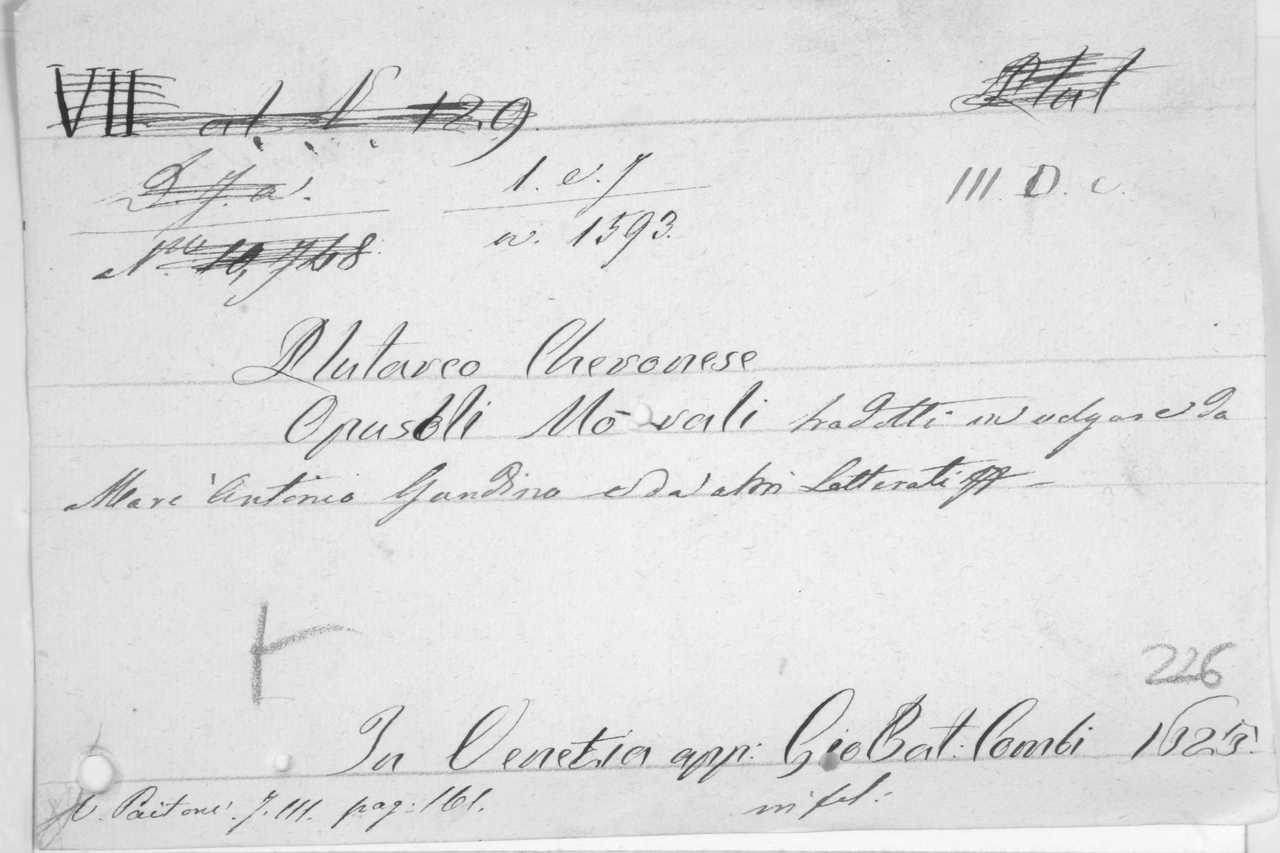 VII at. N. 129. Ital
D. 7. a'. 1. e. 7 III. D. c.
Nro 10,748 a. 1593.
Plutarco Cheronese
Opuscoli Morali tradotti in volgare da
Marc' Antonio Gandino e da' altri Letterati
226
In Venetia app: Gio Bat: Combi 1625.
V. Paitoni. T. III. pag: 161. in fol: